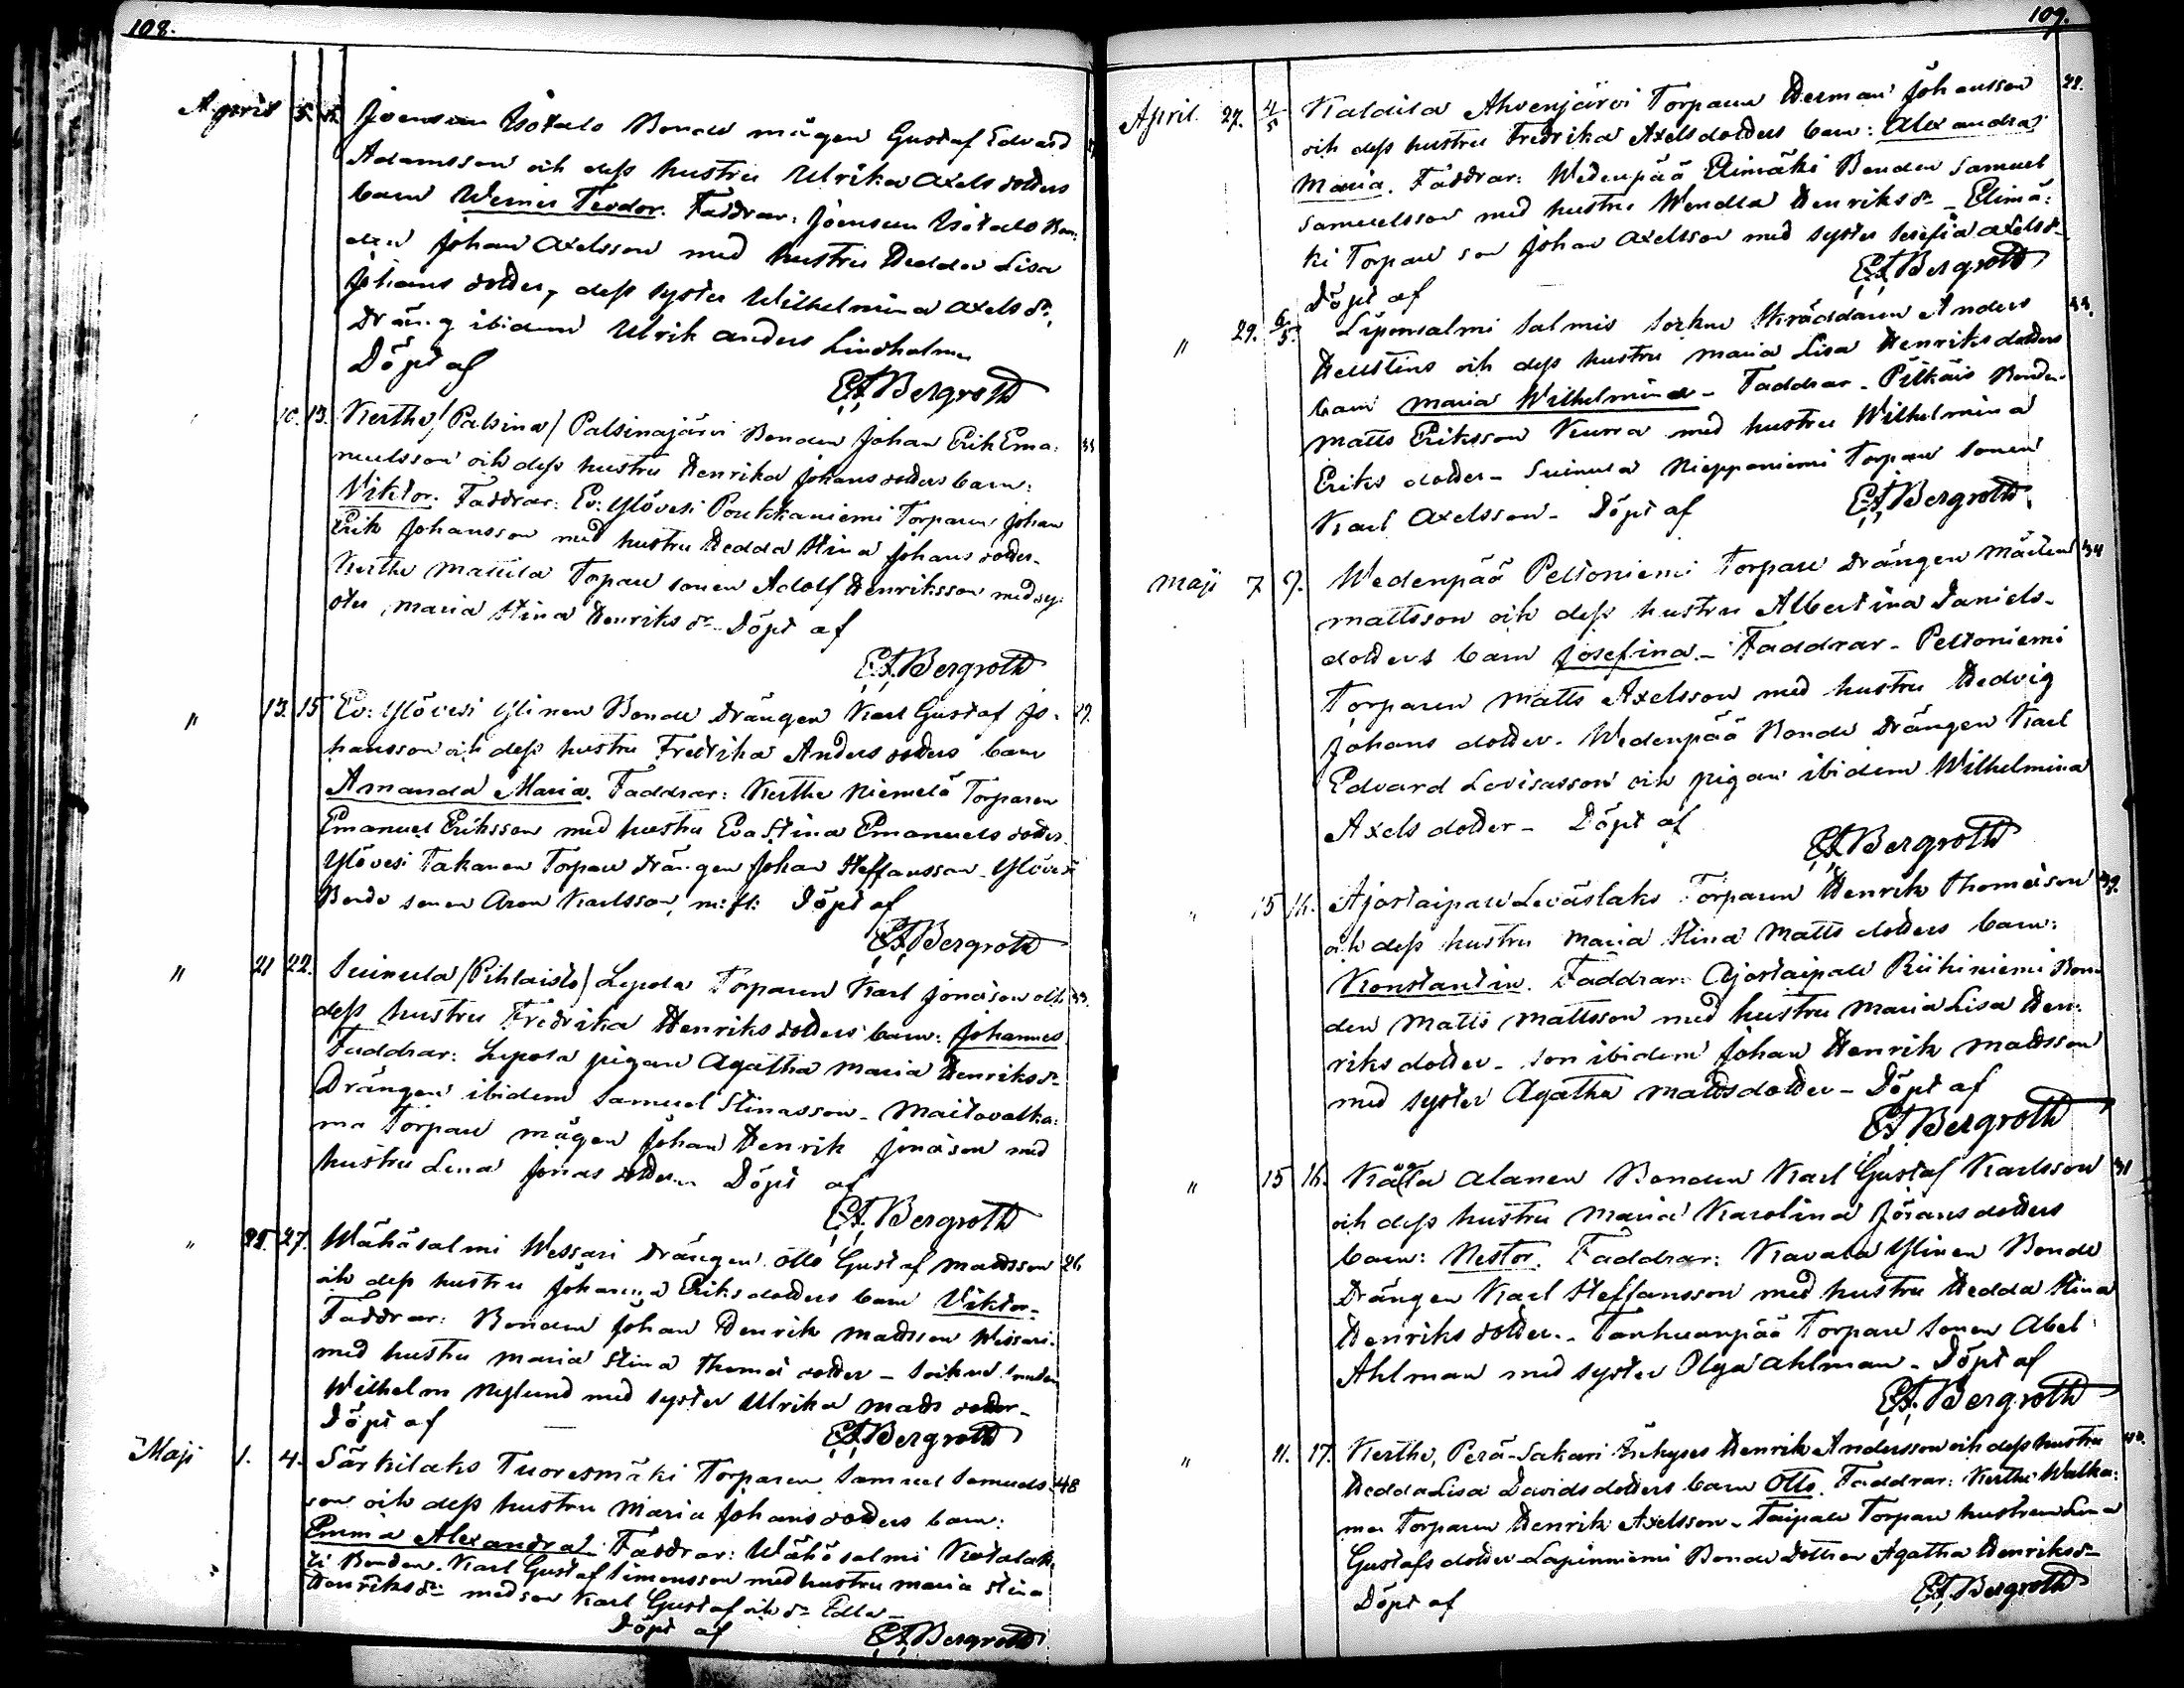 108.
April 5. 5. Joensuu Isotalo Bonde mågen Gustaf Edvard
Adamsson och dess hustru Ulrika Axels dotters
barn Werner Teodor. Faddrar: Joensuu Isotalo Bon-
den Johan Axelsson med hustru Hedda Lisa
Johans dotter, dess syster Wilhelmina Axels dr,
Dräng ibidem Ulrik Anders Lindholm
Döpt af
E.A. Bergroth
10. 13. Kerttu /Palsina/ Palsinajärvi Bonden Johan Erik Ema- 33
nuelsson och dess hustru Henrika Johans dotters barn:
Viktor. Faddrar: Ev: Ylövesi Poukkaniemi Torparen Johan
Erik Johansson med hustru Hedda Stina Johans dotter.
Kerttu Mattila Torpare sonen Adolf Henriksson med sy-
ster Maria Stina Henriks dr. Döpt af
E.A. Bergroth
" 13. 15 Ev: Ylövesi Ylinen Bonde Drängen Karl Gustaf Jo- 29.
hansson och dess hustru Fredrika Anders dotters barn
Amanda Maria. Faddrar: Kerttu Niemelä Torparen
Emanuel Eriksson med hustru Eva Stina Emanuels dotter.
Ylövesi Takanen Torpare Drängen Johan Steffansson. Ylövesi
Bonde sonen Aron Karlsson, m: fl: Döpt af
E.A. Bergroth
" 21 22. Suinula /Pihlaisto/ Lepola Torparen Karl Jonasson och 33.
dess hustru Fredrika Henriks dotters barn: Johannes
Faddrar: Lepola pigan Agatha Maria Henriks dr
Drängen ibidem Samuel Stinasson - Maitovalka-
ma Torpare mågen Johan Henrik Jonasson med
hustru Lena Jonas dotter. Döpt af
E.A. Bergroth
" 25. 27. Wähäsalmi Wessari Drängen Otto Gustaf Mattsson 26
och dess hustru Johanna Eriks dotters barn Viktor.
Faddrar: Bonden Johan Henrik Mattsson Wessari
med hustru Maria Stina Thomas dotter -
Wilhelm Nylund med syster Ulrika Matts dotter -
Döpt af
E.A. Bergroth
Maji 1. 4. Särkilaks Tuoresmäki Torparen Samuel Samuels- 48
son och dess hustru Maria Johans dotters barn:
Emma Alexandra. Faddrar: Wähäsalmi
Bonden Karl Gustaf Simonsson med hustru Maria Stina
Henriks dr. med son Karl Gustaf och dr Edla -
Döpt af
E.A. Bergroth
109.
April. 27. 4/5 Kaldila Ahvenjärvi Torparen Herman Johansson 28.
och dess hustru Fredrika Axels dotters barn: Alexandra
Maria. Faddrar: Wedenpää Elimäki Bonden Samuel
Samuelsson med hustru Wendla Henriks dr - Elimä-
ki Torpare son Johan Axelsson med syster Serefia Axels dr
Döpt af
E.A. Bergroth
" 29. 6/5. Liponsalmi Salmis Sockne Skräddaren Anders 33.
Hellstens och dess hustru Maria Lisa Henriks dotters
barn Maria Wilhelmina - Faddrar - Pitkäis Bonden
Matts Eriksson Kurra med hustru Wilhelmina
Eriks dotter - Suinula Nieppaniemi Torpare sonen
Karl Axelsson - Döpt af
E.A. Bergroth
Maji 7 9. Wedenpää Peltoniemi Torpare Drängen Mårten 34
Mattsson och dess hustru Albertina Daniels-
dotters barn Josefina. - Faddrar - Peltoniemi
Torparen Matts Axelsson med hustru Hedvig
Johans dotter. Wedenpää Bonde Drängen Karl
Edvard Lovisasson och pigan ibidem Wilhelmina
Axels dotter - Döpt af
E.A. Bergroth
" 15 16. Ajostaipale Leväslaks Torparen Henrik Thomasson 39.
och dess hustru Maria Stina Matts dotters barn:
Konstantin. Faddrar: Ajostaipale Riihiniemi Bon-
den Matts Mattsson med hustru Maria Lisa Hen-
riks dotter - son ibidem Johan Henrik Mattsson
med syster Agatha Mattsdotter - Döpt af
E.A. Bergroth
" 15 16. Alanen Bonden Karl Gustaf Karlsson 31
och dess hustru Maria Karolina Jörans dotters
barn: Nestor. Faddrar: Kavala Ylinen Bonde
Drängen Karl Steffansson med hustru Hedda Stina
Henriks dotter. - Tanhuanpää Torpare sonen Abel
Ahlman med syster Olga Ahlman - Döpt af
E.A. Bergroth
" 11. 17. Kerttu, Perä-Sakari Inhyses Henrik Andersson och dess hustru 40.
Hedda Lisa Davids dotters barn Otto. Faddrar: Kerttu Walka-
ma Torparen Henrik Axelsson - Taipale Torpare hustrun Lena
Gustafs dotter - Lapinniemi Bonde dotteren Agatha Henriks dr -
Döpt af
E.A. Bergroth